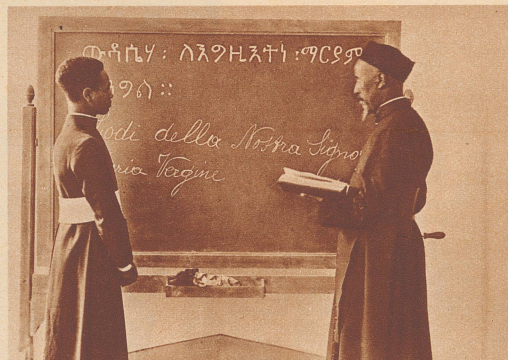 ውዳሴሃ ፡ ለእግዚእትነ ፡ ማርያም
ንግል ፡፡
odi della Nostra Signo
ria Vergine